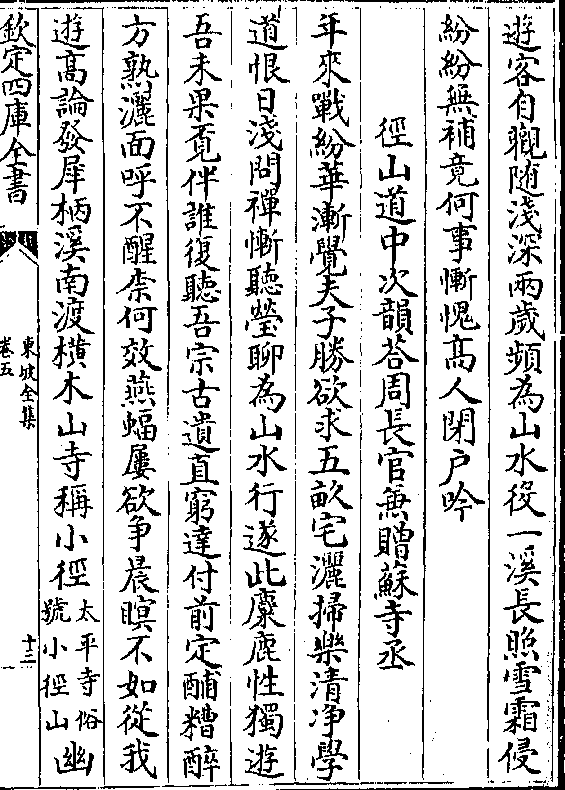 遊客自觀随淺深兩歲頻為山水役一溪長照雪霜侵
紛紛無補竟何事慚愧髙人閉户吟
徑山道中次韻荅周長官兼贈蘇寺丞
年來戰紛華漸覺夫子勝欲求五畝宅灑掃樂清浄學
道恨日淺問禪慚聽瑩聊為山水行遂此麋鹿性獨遊
吾未果覔伴誰復聽吾宗古遺直窮達付前定餔糟醉
方熟灑面呼不醒柰何效燕蝠屢欲争晨暝不如從我
遊髙論發犀柄溪南渡横木山寺稱小徑太平寺俗號小徑山幽
欽定四庫全書
東坡全集
卷五
十三